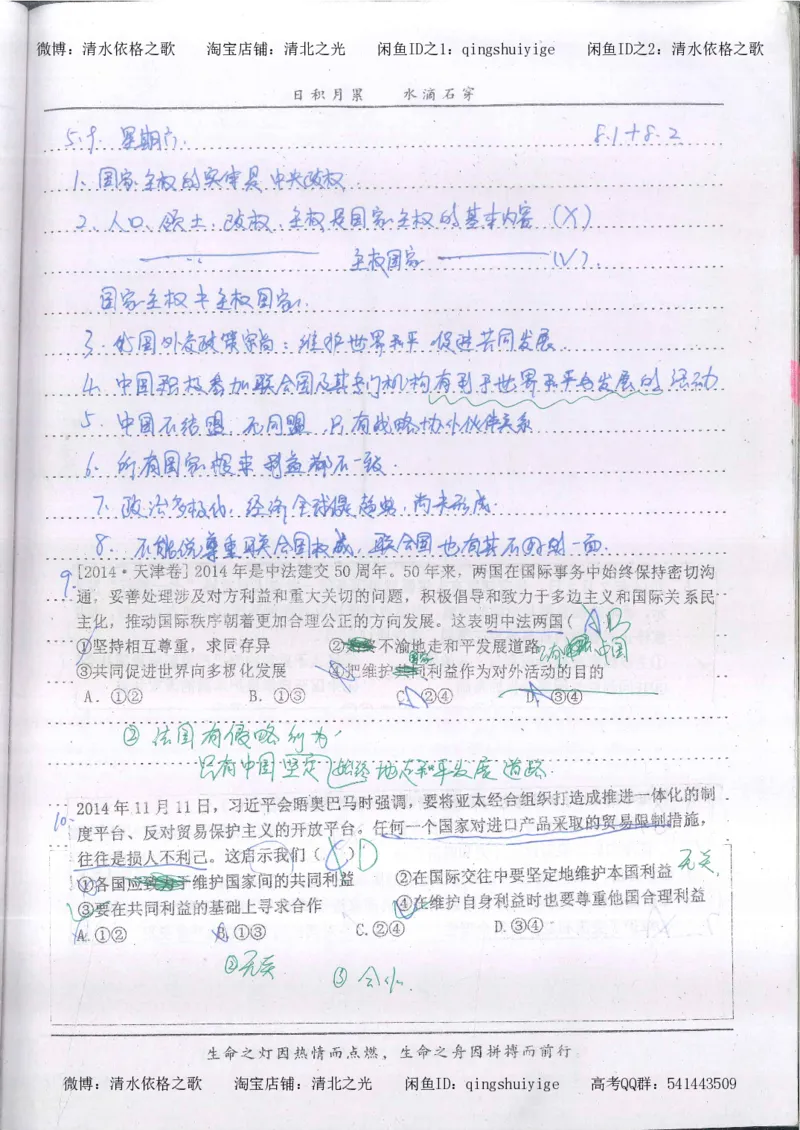 微博：清水依格之歌 淘宝店铺：清北之光 闲鱼ID之1：qingshuiyige 闲鱼ID之2：清水依格之歌
日积月累 水滴石穿
5.9. 星期六. 8.1+8.2
1. 国家主权的实体是中央政权
2、人口、领土、政权、主权是国家主权的基本内容 (X)
主权国家 (√).
国家主权≠主权国家.
3. 我国外交政策宗旨：维护世界和平 促进共同发展
4. 中国积极参加联合国及其专门机构有利于世界和平与发展的活动
5. 中国不结盟，无同盟，只有战略协作伙伴关系
6. 所有国家根本利益都不一致.
7. 政治多极化，经济全球化是趋势，尚未形成.
8. 不能说尊重联合国权威，联合国也有其不好的一面.
9. [2014·天津卷] 2014年是中法建交50周年。50年来，两国在国际事务中始终保持密切沟
通，妥善处理涉及对方利益和重大关切的问题，积极倡导和致力于多边主义和国际关系民
主化，推动国际秩序朝着更加合理公正的方向发展。这表明中法两国( B
①坚持相互尊重，求同存异 ②不渝地走和平发展道路 只有中国
③共同促进世界向多极化发展 ④把维护共同利益作为对外活动的目的 国家
A. ①② B. ①③ C. ②④ D. ③④
② 法国有侵略行为
只有中国坚定始终地走和平发展道路.
10. 2014年11月11日，习近平会晤奥巴马时强调，要将亚太经合组织打造成推进一体化的制
度平台、反对贸易保护主义的开放平台。任何一个国家对进口产品采取的贸易限制措施，
往往是损人不利己。这启示我们( D
①各国应维护国家间的共同利益 ②在国际交往中要坚定地维护本国利益 无关,
③要在共同利益的基础上寻求合作 ④在维护自身利益时也要尊重他国合理利益
A. ①② B. ①③ C. ②④ D. ③④
②无关 ③ 合作.
生命之灯因热情而点燃，生命之舟因拼搏而前行
微博：清水依格之歌 淘宝店铺：清北之光 闲鱼ID：qingshuiyige 高考QQ群：541443509